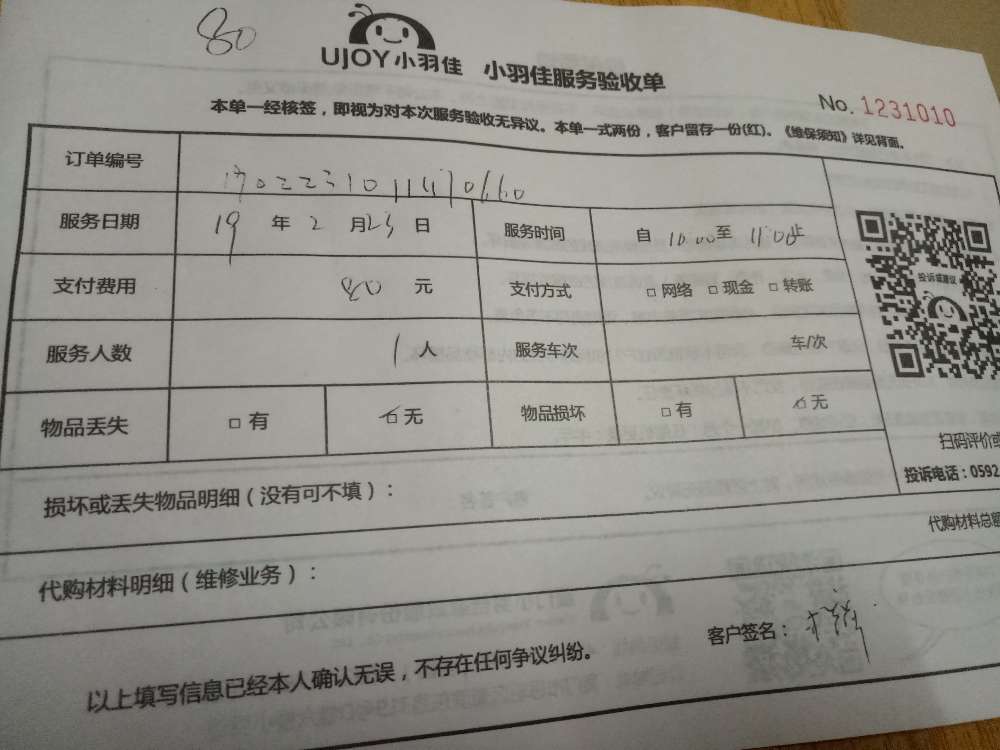 80
UJOY小羽佳 小羽佳服务验收单
No. 1231010
本单一经核签，即视为对本次服务验收无异议。本单一式两份，客户留存一份(红)。《维保须知》详见背面。
订单编号
服务日期 19 年 2 月 23 日 服务时间 自 10:00 至 11:00 止
支付费用 80 元 支付方式 □ 网络 □ 现金 □ 转账
服务人数 1 人 服务车次 车/次
物品丢失 □ 有 ☑ 无 物品损坏 □ 有 ☑ 无
投诉或建议
扫码评价或
投诉电话：0592
损坏或丢失物品明细（没有可不填）：
代购材料总额
代购材料明细（维修业务）：
客户签名：
以上填写信息已经本人确认无误，不存在任何争议纠纷。